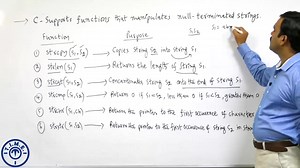 → C- Supports functions that manipulates null-terminated strings.
Function Purpose
① strcpy(S1,S2) → Copies string S2 into string S1
② strlen(S1) → Returns the length of string S1
③ strcat(S1,S2) → Concatenates string S2 onto the end of string S1
④ strcmp(S1,S2) → Return 0 if S1=S2, less than 0 if S1<S2, greater than 0
⑤ → Return the pointer to the first occurrence of character
⑥ strstr(S1,S2) → Return the pointer to the first occurrence of string S2 in string